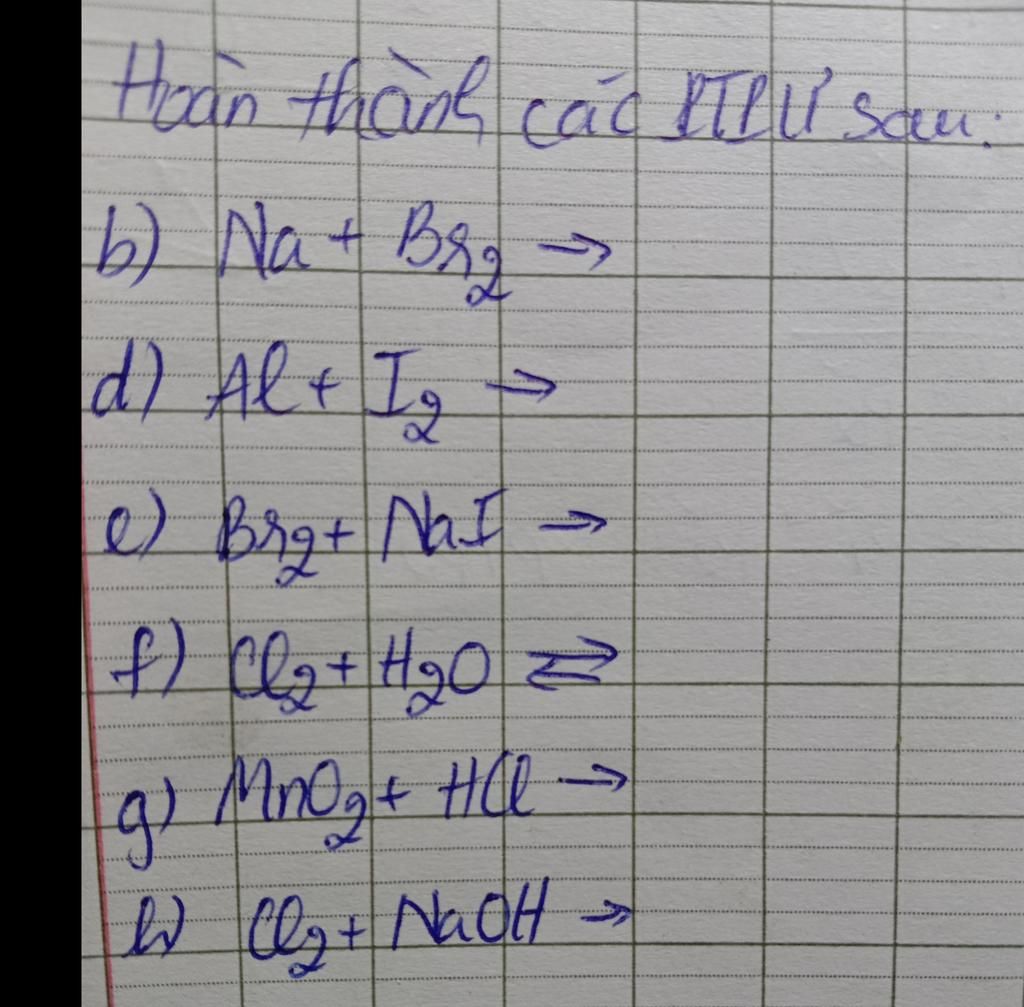 Hoàn thành các PTPƯ sau:
b) Na + Br₂ →
d) Al + I₂ →
e) Br₂ + NaI →
f) Cl₂ + H₂O ⇌
g) MnO₂ + HCl →
h) Cl₂ + NaOH →